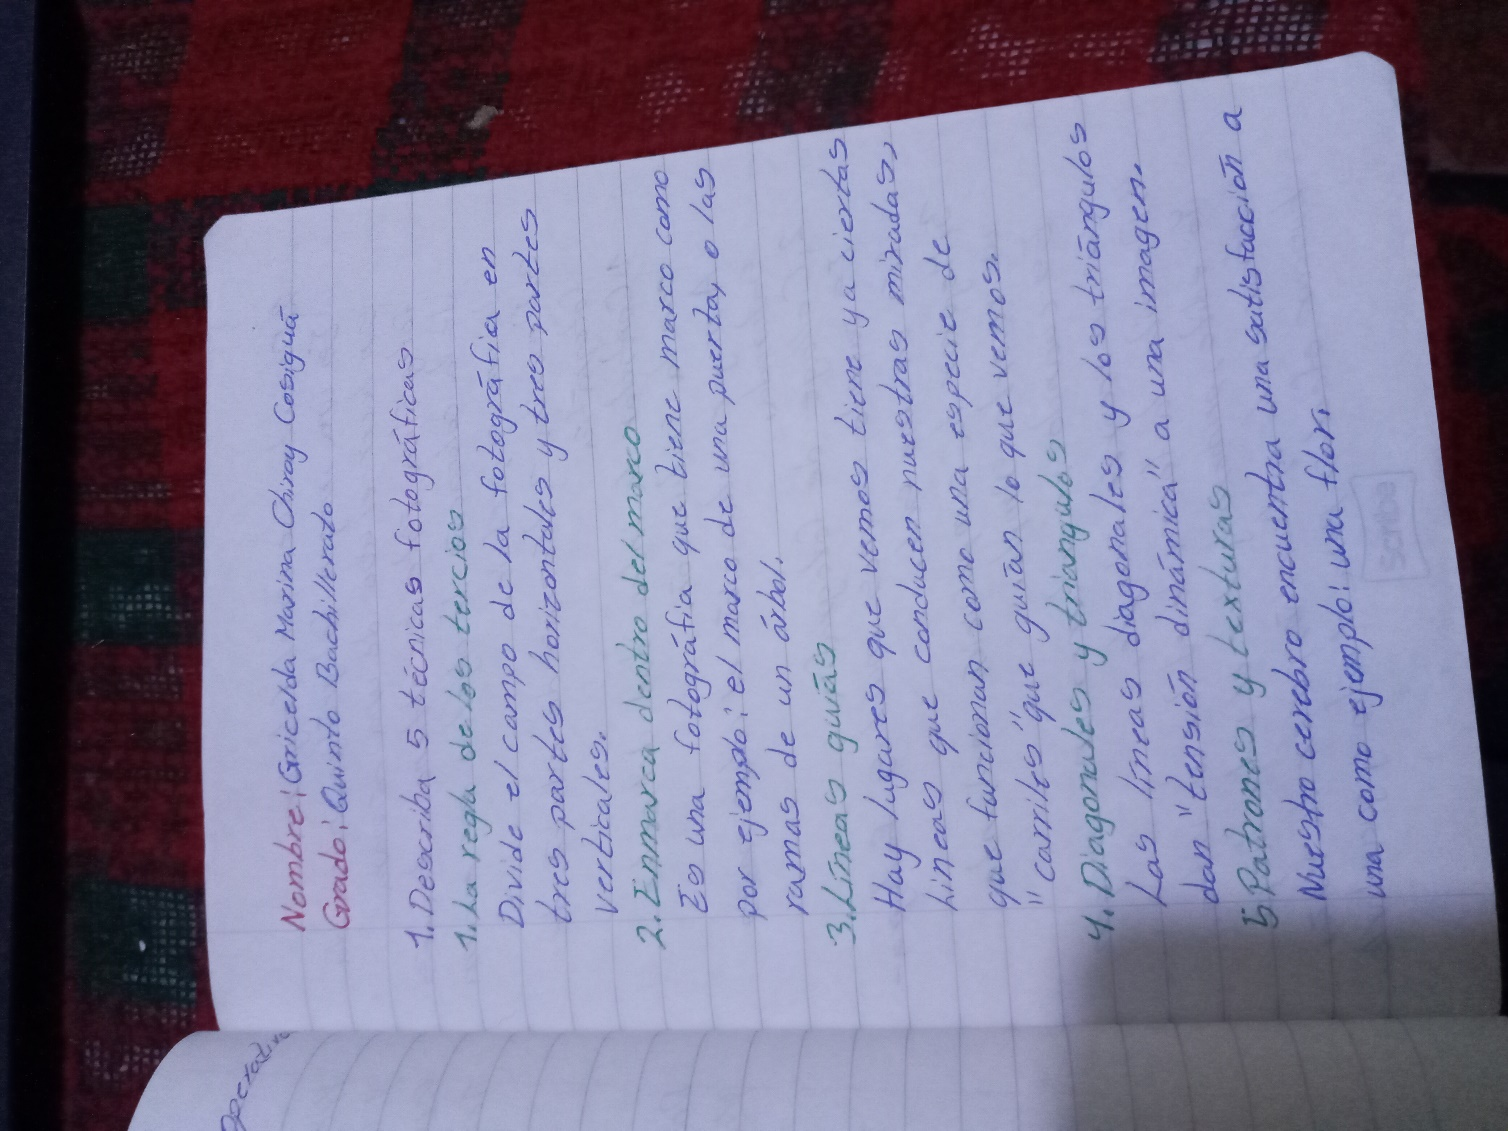 Nombre: Gricelda Marina Chiroy Cosiguá
Grado: Quinto Bachillerato
1. Describa 5 técnicas fotográficas
1. La regla de los tercios
Divide el campo de la fotográfia en
tres partes horizontales y tres partes
verticales.
2. Enmarca dentro del marco
Es una fotográfia que tiene marco como
por ejemplo: el marco de una puerta, o las
ramas de un árbol.
3. Líneas guías
Hay lugares que vemos tiene ya ciertas
Líneas que conducen nuestras miradas,
que funcionan como una especie de
"carriles" que guían lo que vemos.
4. Diagonales y triangulos
Las líneas diagonales y los triángulos
dan "tensión dinámica" a una imagen.
5. Patrones y texturas
Nuestro cerebro encuentra una satisfacción a
una como ejemplo: una flor.
scribe
Operativo